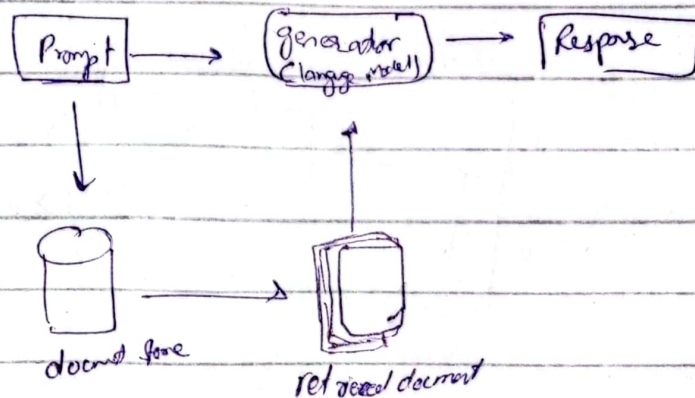 Prompt
generador
(langage model)
Response
docmnt
retrieved docment